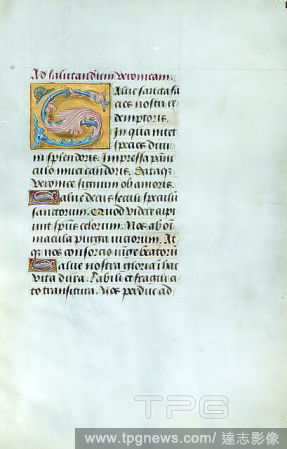 Ad salutandum veronicam.
Salve sancta fa
cies nostri re
demptoris.
In qua nitet
species divi
ni splendoris. Impressa pāni
culo nivei candoris. Dataq3
veronice signum ob amoris.
Salve decus seculi speculū
sanctorum. Quod videre cupi
unt spūs celorum. Nos ab oī
macula purga viciorum. At
q3 nos consorcio iūge beatorū
Salve nostra gloria ī hac
vita dura. Labili et fragili ci
to transitura. Nos perduc ad
TPG
www.tpgnews.com / 達志影像